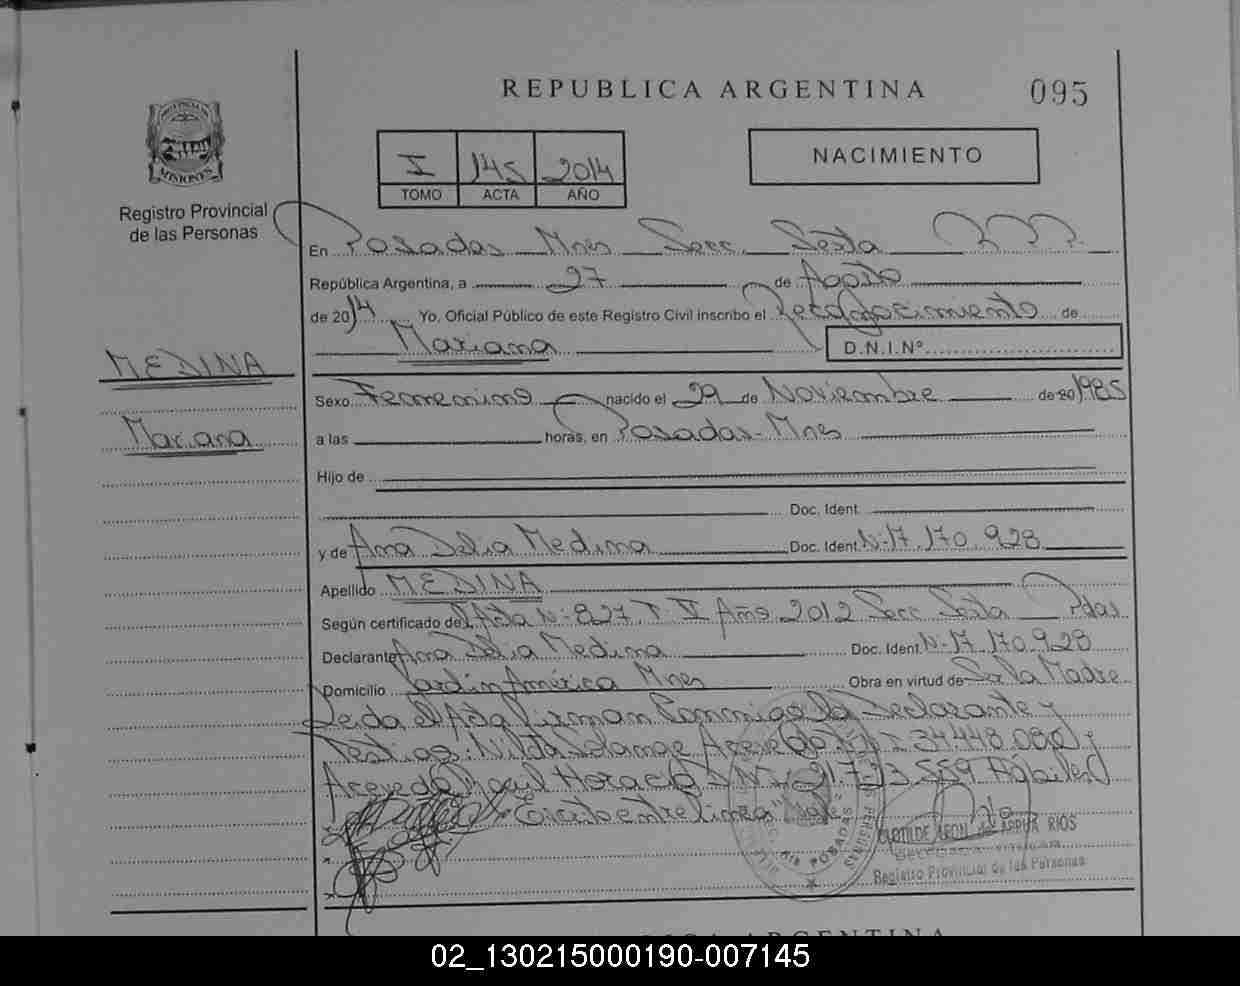 REPUBLICA ARGENTINA
095
I 145 2014
TOMO ACTA AÑO
NACIMIENTO
MISIONES
Registro Provincial
de las Personas
En Posadas Mnes Secc. Sexta
República Argentina, a 27 de Agosto
de 2014 Yo, Oficial Público de este Registro Civil inscribo el Reconocimiento de
Mariana
D.N.I.Nº
MEDINA
Mariana
Sexo Femenino nacido el 29 de Noviembre de 20 1985
a las horas, en Posadas-Mnes
Hijo de
Doc. Ident.
y de Ana Delia Medina Doc. Ident. Nº 17.170.928
Apellido MEDINA
Según certificado de Acta Nº 827 T II Año 2012 Secc Sexta Pdas
Declarante Ana Delia Medina Doc. Ident. Nº 17.170.928
Domicilio Jardin América Mnes Obra en virtud de Ser la Madre
Leida el Acta firman Conmigo la Declarante y
Testigos. Nilda Solange Acevedo 34.448.080 y
Acevedo Horacio DNI 21.723.559 Hábiles
Escrito entre lineas
POSADAS
CLOTILDE RIOS
DELEGADA
Registro Provincial de las Personas
ARGENTINA
02_130215000190-007145